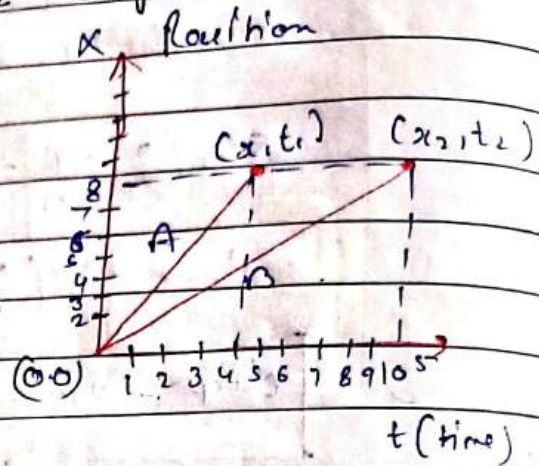 x Position
(x, t₁) (x₂, t₂)
8
7
6
5
4
3
2
A
B
(0.0) 1 2 3 4 5 6 7 8 9 10 5
t (time)